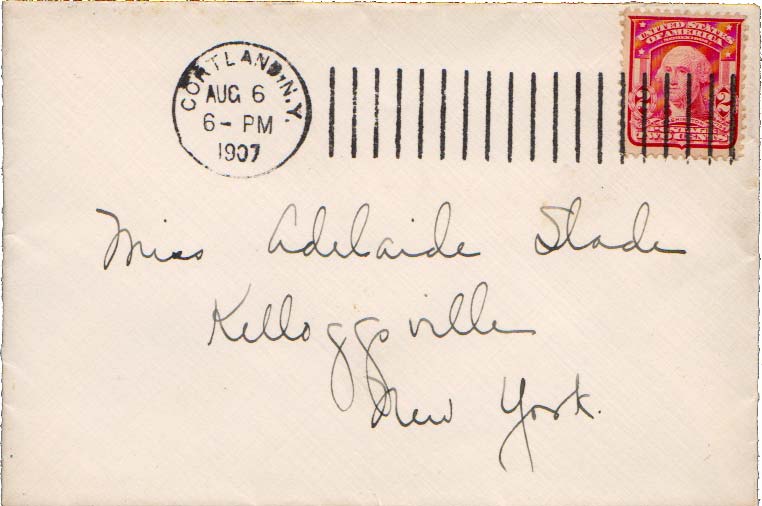 CORTLAND, N.Y.
AUG 6
6- PM
1907
UNITED STATES
OF AMERICA
2 2
TWO CENTS
Miss Adelaide Slade
Kelloggsville
New York.